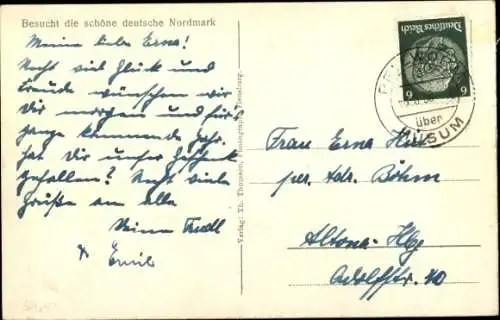 Besucht die schöne deutsche Nordmark
Meine liebe Erna!
Recht viel Glück und
Freude wünschen wir
Dir morgen und für's
ganze kommende Jahr.
Hat Dir unser Geschenk
gefallen? Recht viele
Grüße an alle
Deine Trudl
& Emil
Verlag: Th. Thomsen, Photograph, Flensburg.
Deutsches Reich
6 6
über
HUSUM
Frau Erna
per. Adr. Böhm
Altona-Hbg
Adolfstr. 10